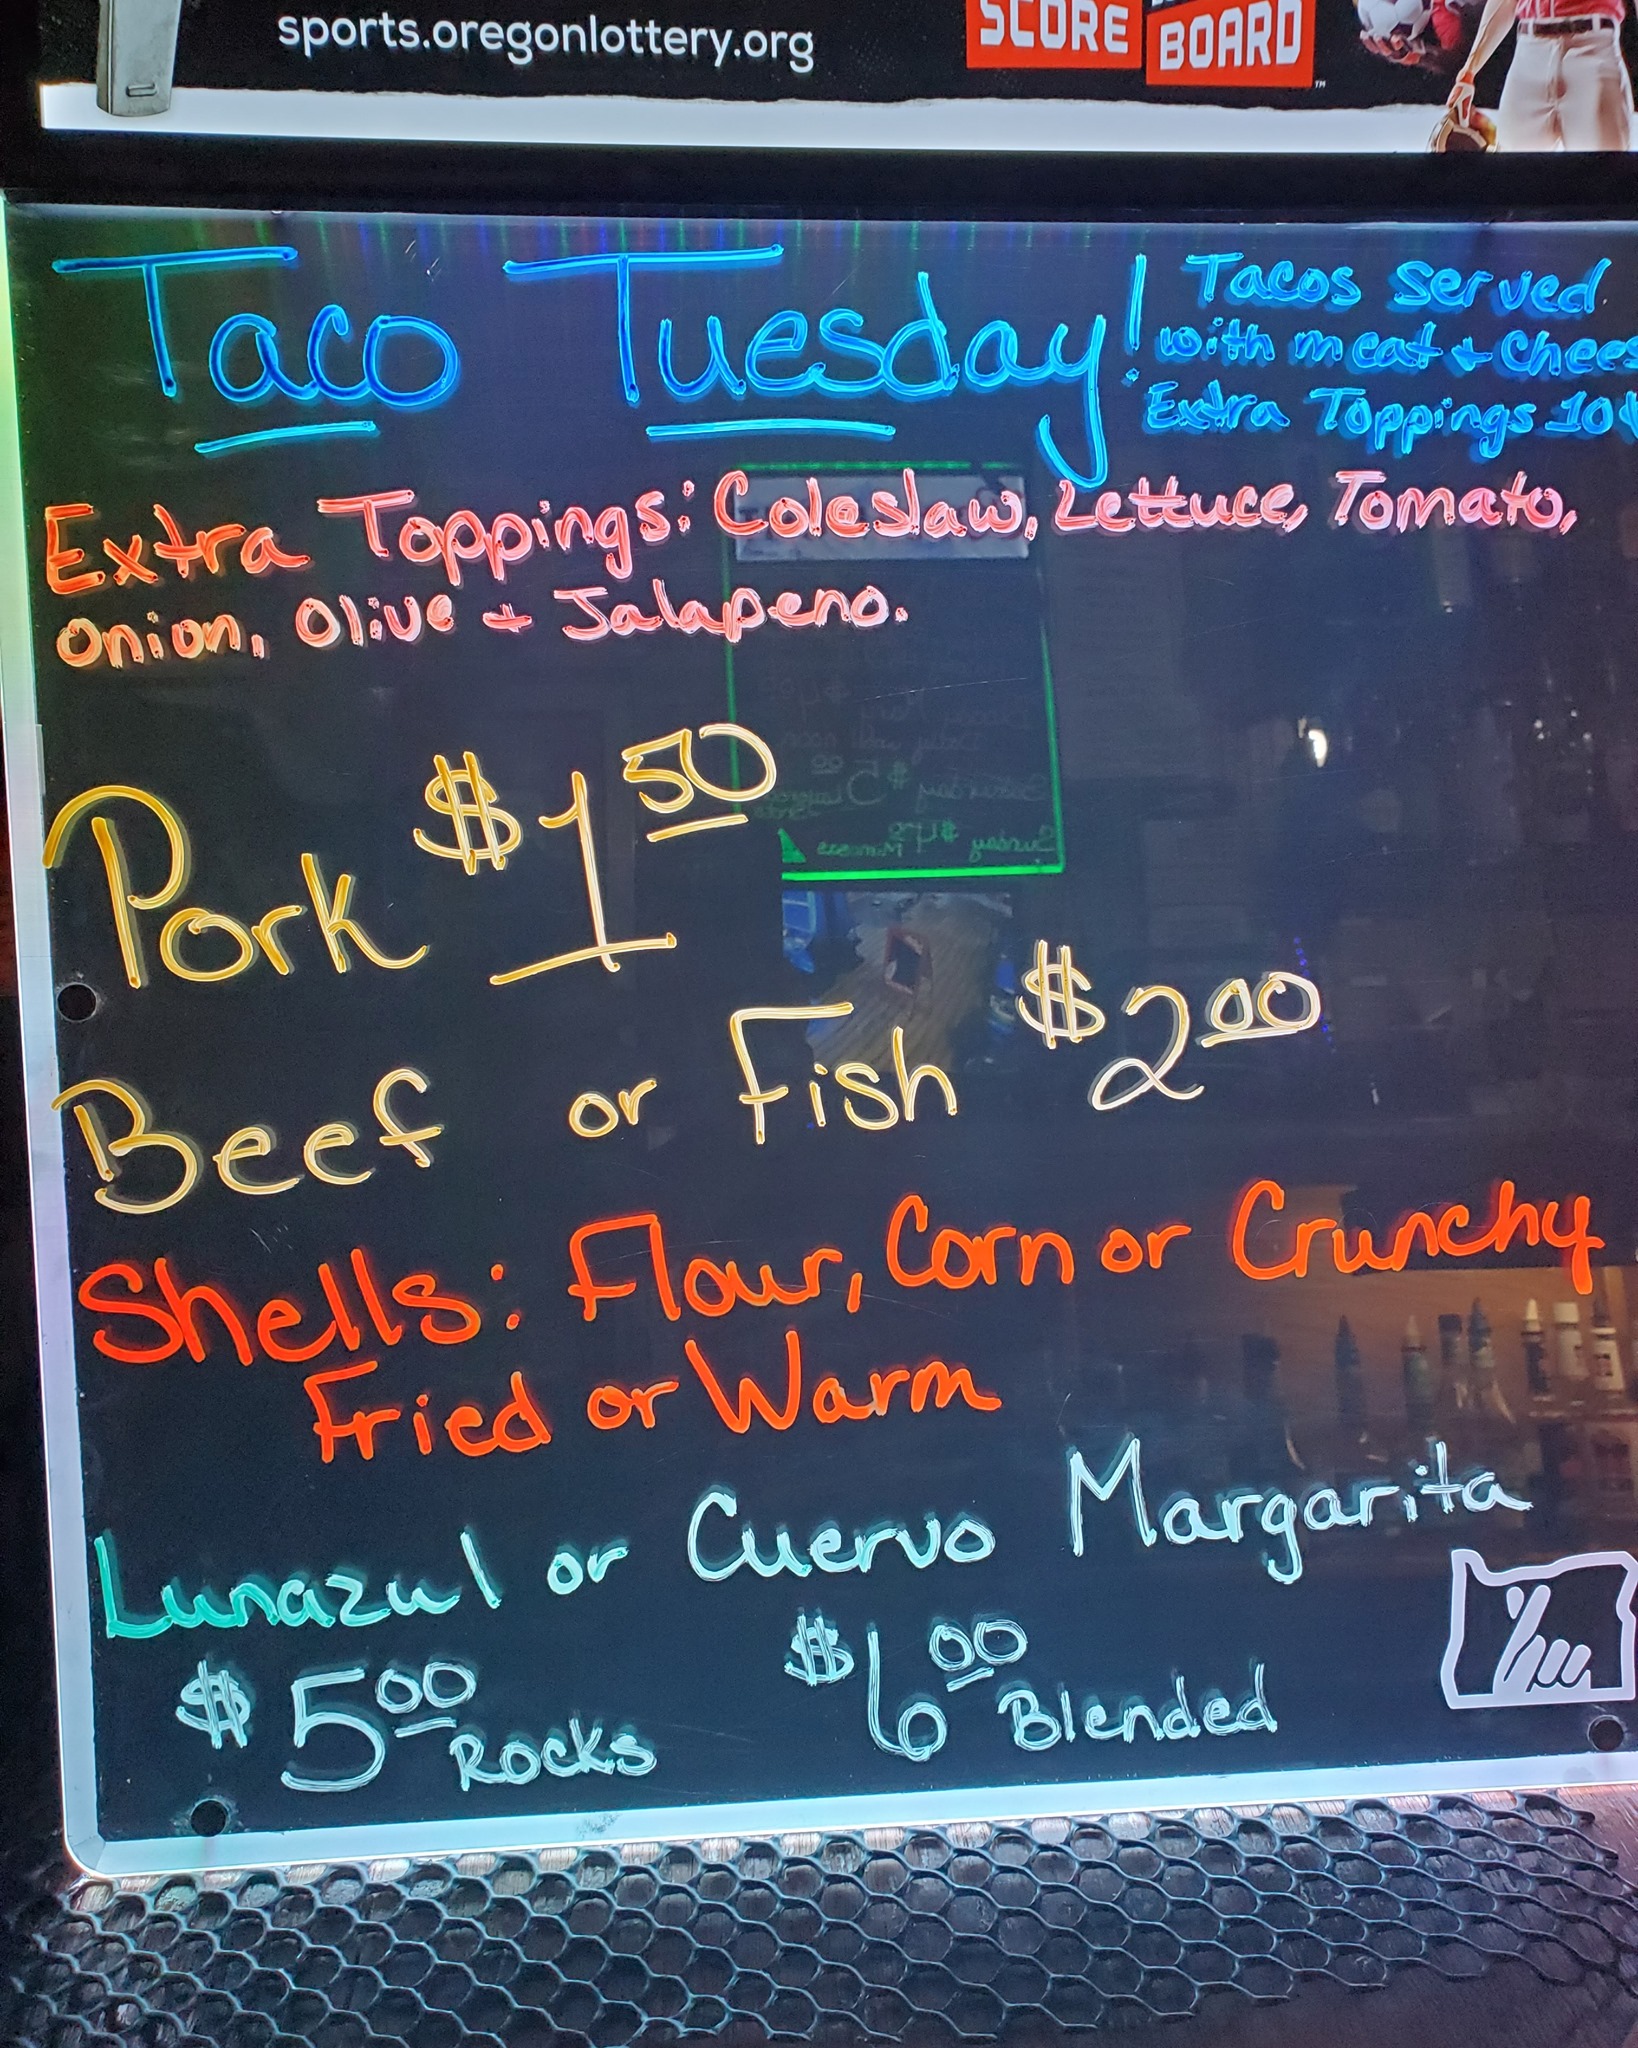 sports.oregonlottery.org
SCORE
BOARD
TM
Taco Tuesday!
Tacos served
with meat + Chees
Extra Toppings 10¢
Extra Toppings: Coleslaw, Lettuce, Tomato,
Onion, Olive + Jalapeno.
Pork $1 50
Beef or Fish $2 00
Shells: Flour, Corn or Crunchy
Fried or Warm
Lunazul or Cuervo Margarita
$5 00 Rocks $6 00 Blended